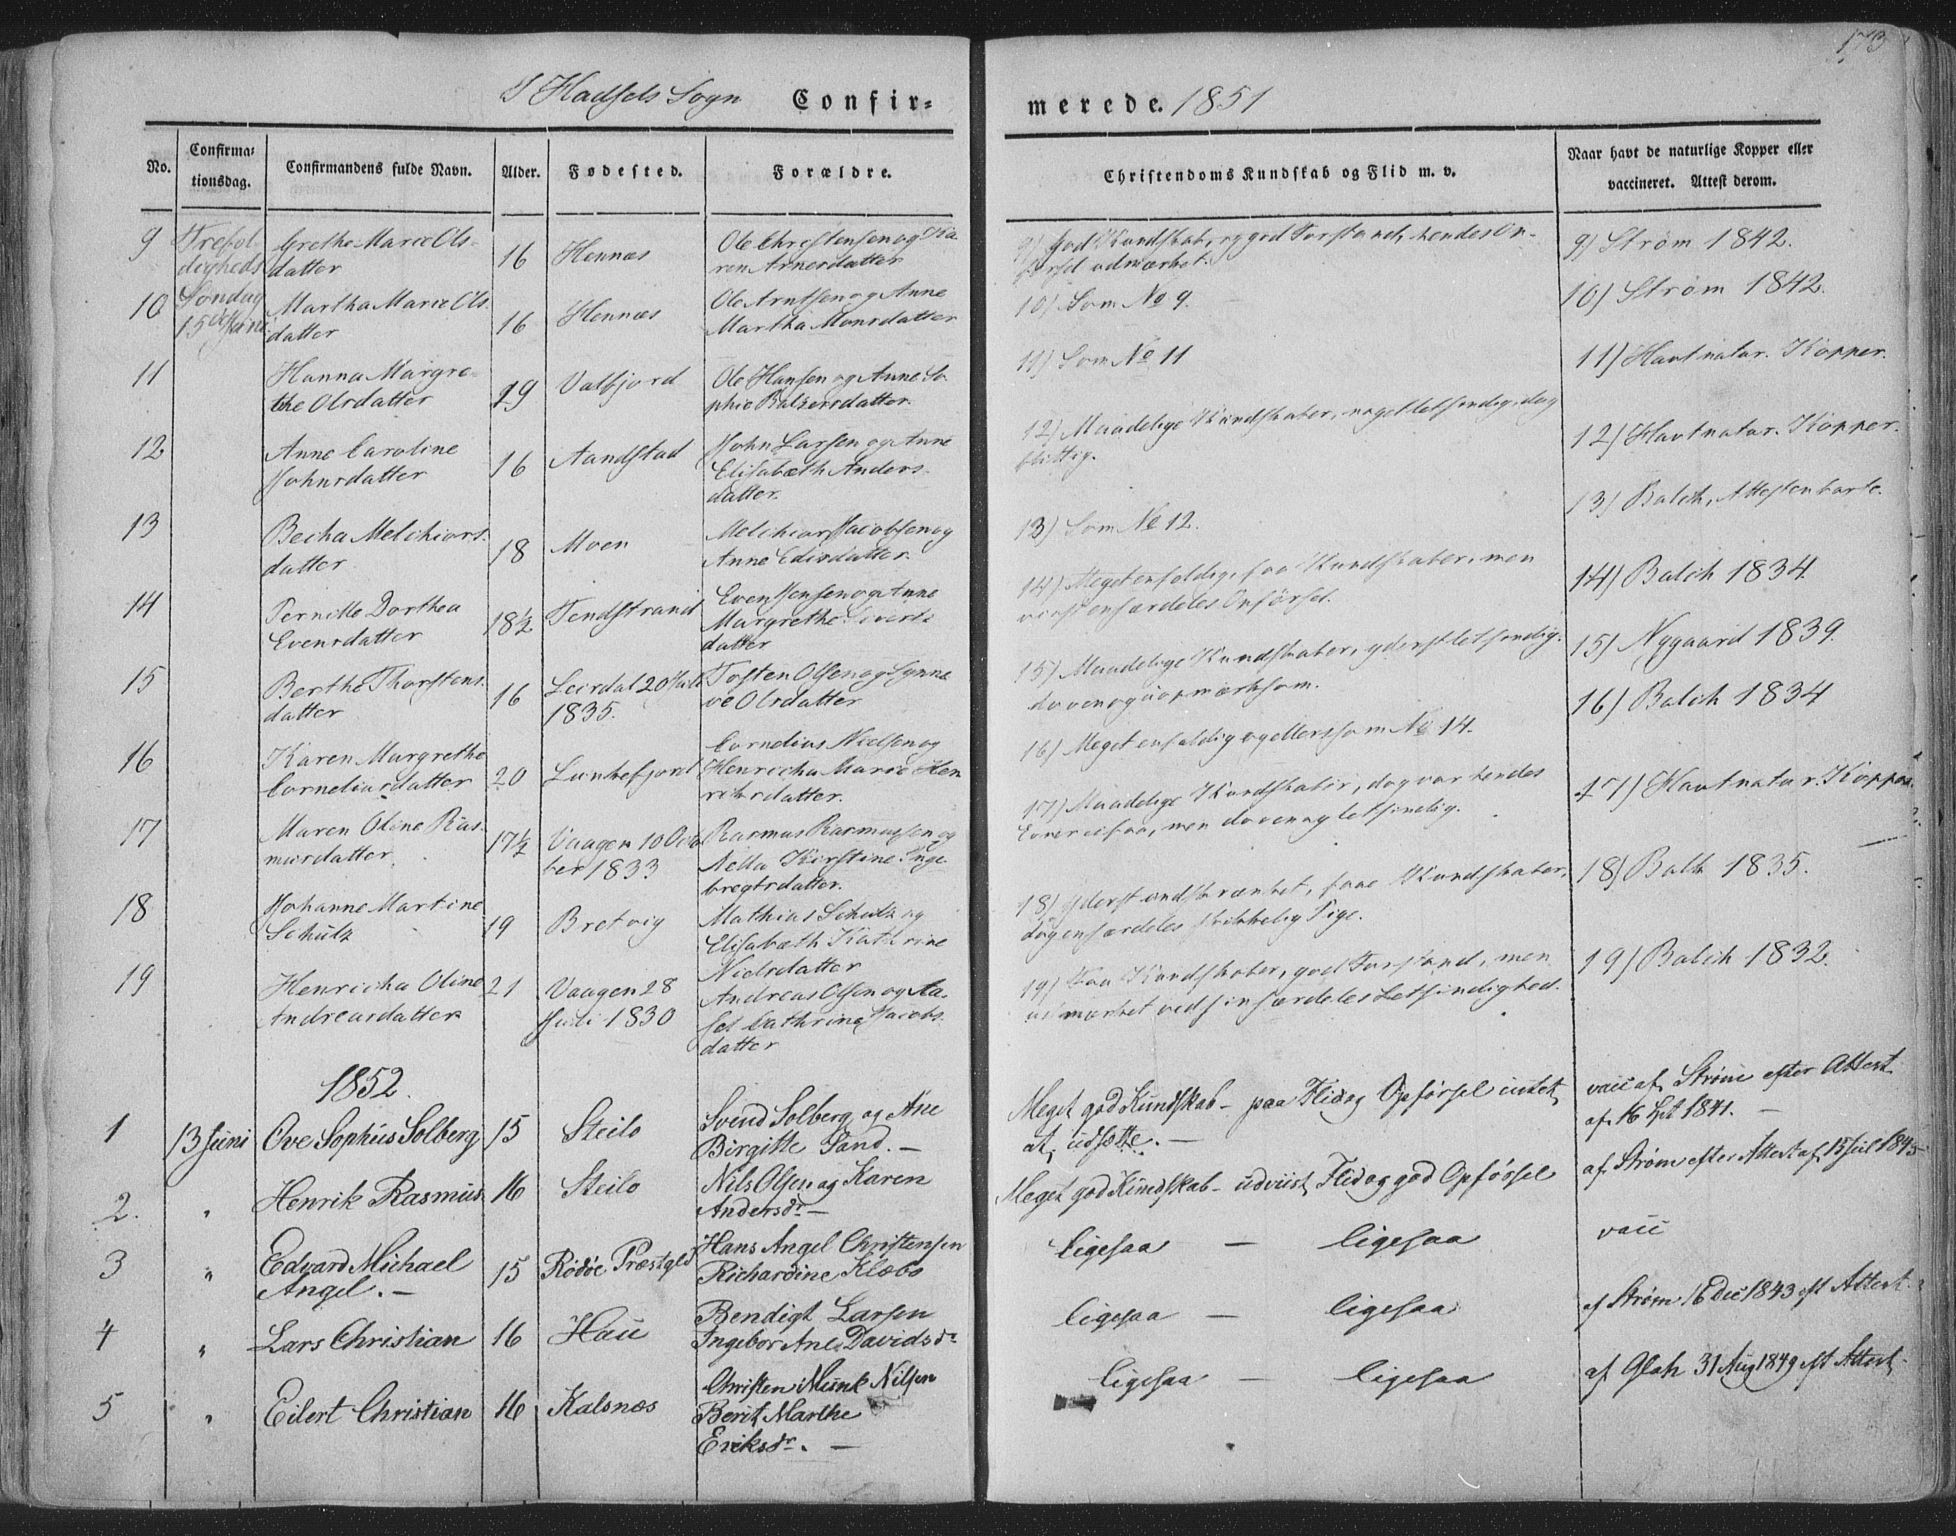 173
I Hadsels Sogn Confir-
merede. 1851
No. Confirma-tionsdag. Confirmandens fulde Navn. Alder. Fødested. Forældre.
Christendoms Kundskab og Flid m. v. Naar havt de naturlige Kopper eller vaccineret. Attest derom.
9 Trefol- Grethe Marie Ols- 16 Hennæs Ole Christensen og Ka-
digheds datter ren Arnesdatter
10 Søndag Martha Marie Ols- 16 Hennæs Ole Arntsen og Anne
15de Juni datter Martha Monsdatter
11 Hanna Margre- 19 Valfjord Ole Hansen og Anne So-
the Olsdatter phie Balzersdatter.
12 Anne Caroline 16 Aandstad John Larsen og Anne
Johnsdatter Elisabæth Anders-
datter.
13 Becha Melchiors- 18 Moen Melchior Jacobsen og
datter Anne Edisdatter.
14 Pernille Dorthea 18½ Tendstrand Even Jensen og Anne
Evensdatter Margrethe Siverts-
datter
15 Berthe Thorstens- 16 Leirdal 20 Juli Tosten Olsen og Synne-
datter 1835. ve Olsdatter
16 Karen Margrethe 20 Lunkefjord Cornelius Nielsen og
Corneliusdatter Henricha Marie Hen-
riksdatter.
17 Maren Oline Ras- 17½ Vaagen 10 Octo- Rasmus Rasmussen og
musdatter. ber 1833 Kirstine Inge-
bregtsdatter.
18 Johanne Martine 19 Bretvig Mathias Schulz og
Schulz Elisabæth Kathrine
Nielsdatter
19 Henricha Oline 21 Vaagen 28 Andreas Olsen og Aa-
Andreasdatter Juli 1830 sel Cathrina Jacobs-
datter
1852.
1 13 Juni Ove Sophus Solberg 15 Steilo Svend Solberg og Ane
Birgitte Sand. —
2. " Henrik Rasmus 16 Steilo Nils Olsen og Karen
Andersdr —
3 " Edvard Michael 15 Rødøe Præstgld Hans Angel Christensen
Angel. — Richardine Klæbo
4 " Lars Christian 16 Hau Bendigt Larsen
Ingebor Ane Davidsdr
5 " Eilert Christian 16 Kalsnæs Christen Munk Nilsen
Berit Marthe
Eriksdr. —
9) God Kundskab, og god Forstand, hendes Op- 9) Strøm 1842.
førsel udmærket.
10) Som No 9. 10) Strøm 1842.
11) Som No 11 11) Havt natur. Kopper.
12) Maadelige Kundskaber, noget letsindig, dog 12) Havt natur. Kopper.
flittig.
13) Som No 12. 13) Balch, Attesten borte.
14) Meget enfoldig, faa Kundskaber, men 14) Balch 1834.
viist særdeles Opførsel.
15) Maadelige Kundskaber, yderst letsindig, 15) Nygaard 1839.
doven og uopmærksom.
16) Meget enfoldig og ellers som No 14. 16) Balch 1834
17) Maadelige Kundskaber, dog var hendes 17) Havt natur. Kopper.
Evner ei faa, men doven og letsindig.
18) Yderst indskrænket, faae Kundskaber, 18) Balch 1835.
dog en særdeles skikkelig Pige.
19) Faa Kundskaber, god Forstand, men 19) Balch 1832.
udmærket ved sin særdeles Letsindighed.
Meget god Kundskab - paa Flid og Opførsel intet vacc af Strøm efter Attest
at udsætte. — af 16 Spt 1841. —
Meget god Kundskab - udviist Flid og god Opførsel af Strøm efter Attest af 15 Jul 1845
ligesaa — ligesaa vacc
ligesaa — ligesaa af Strøm 16 Dec 1843 eft Attest.
ligesaa — ligesaa af Glah 31 Aug 1849 eft Attest.